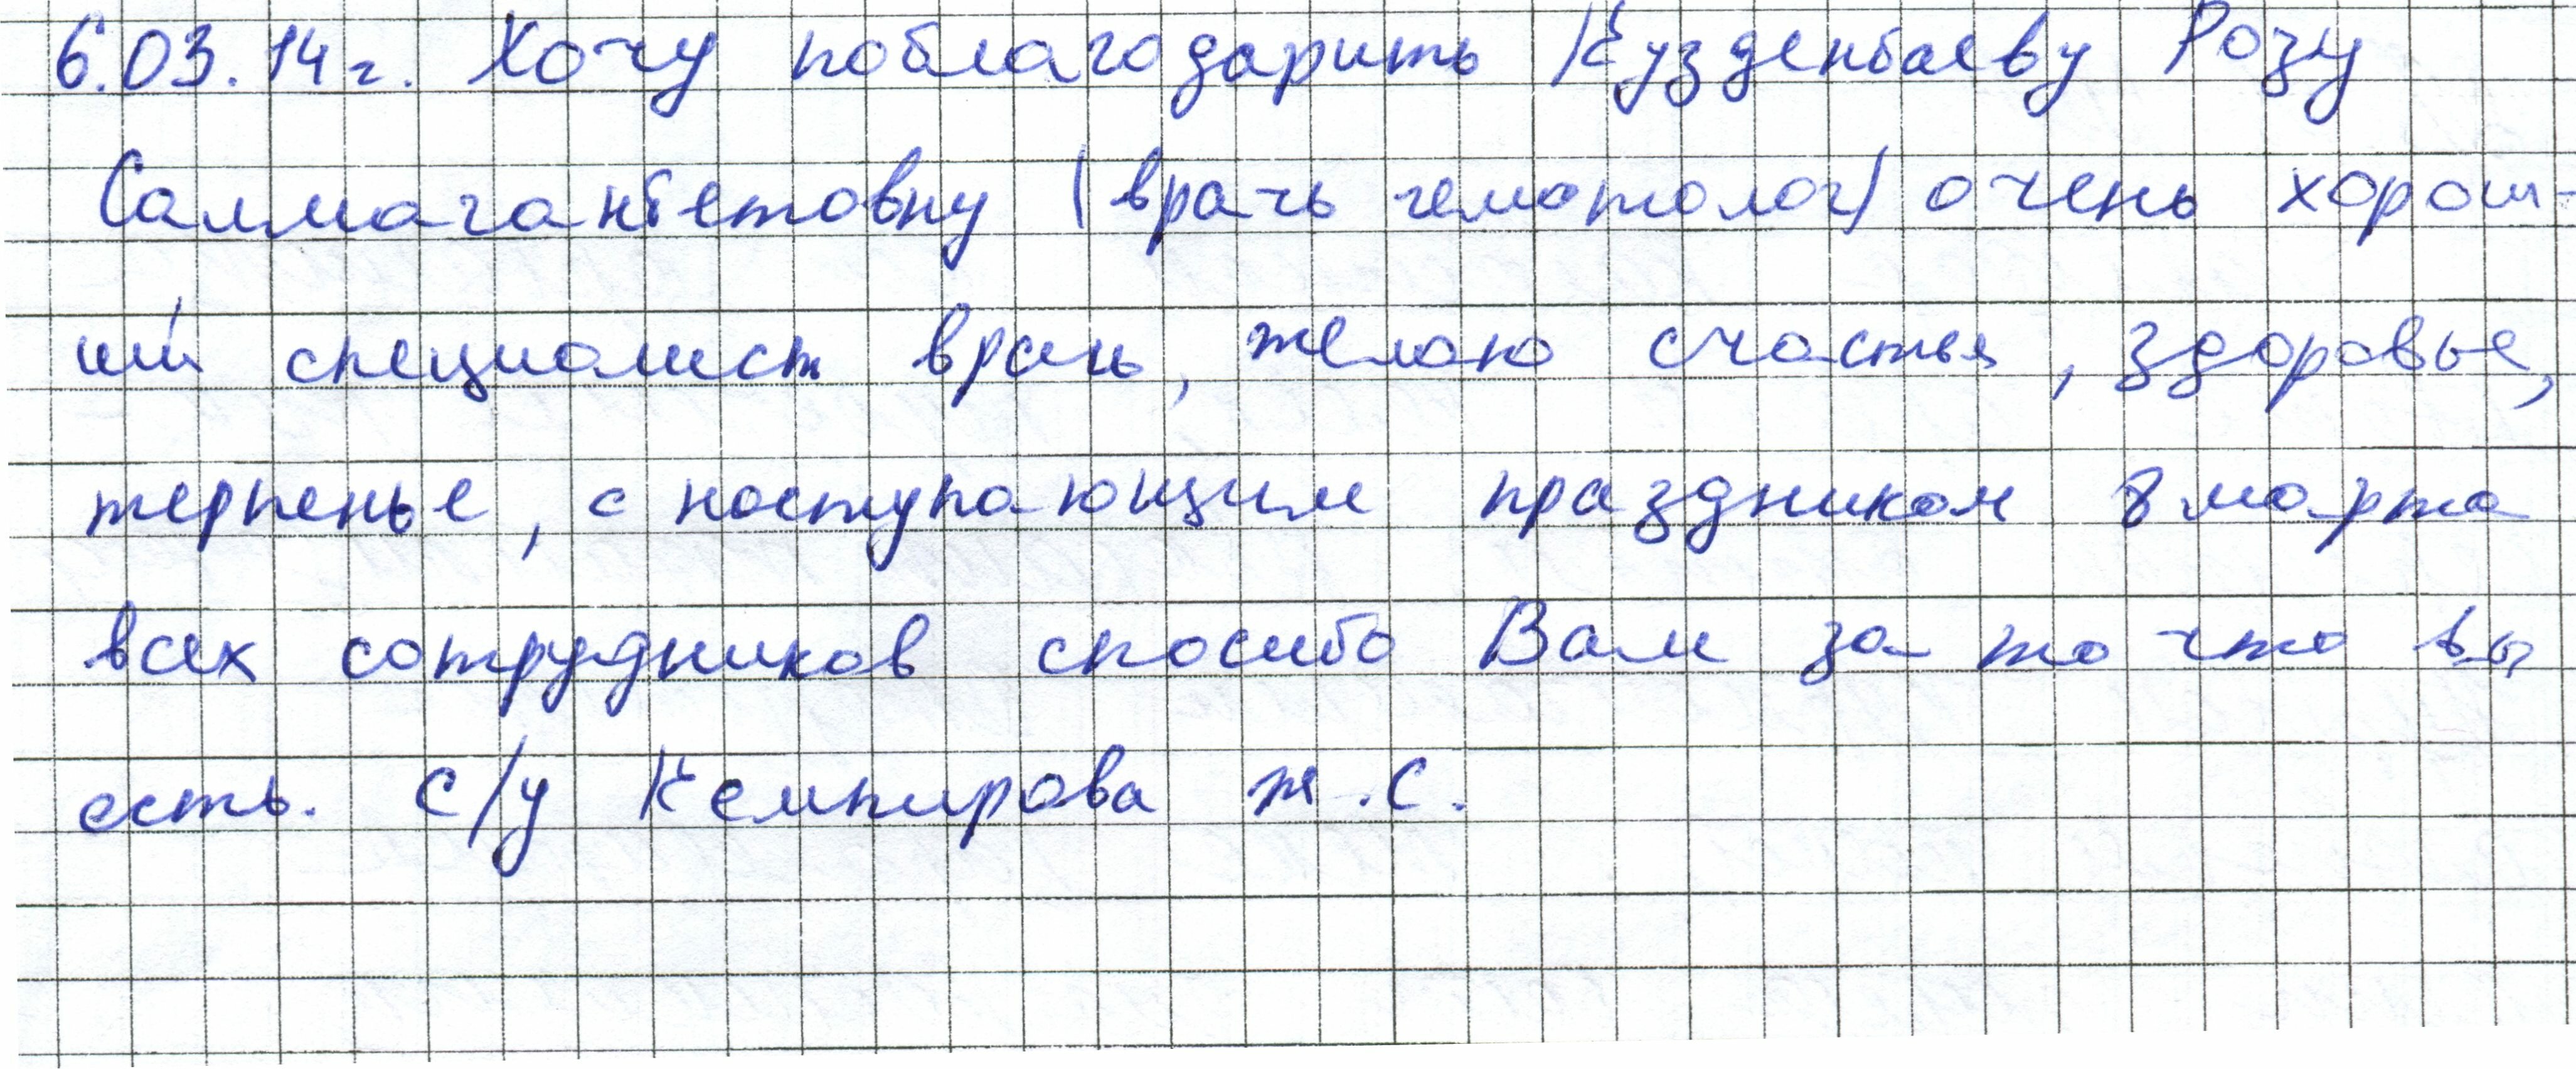 6.03.14г. Хочу поблагодарить Кузденбаеву Розу
Салмаганбетовну (врачь гематолог) очень хорош-
ий специалист врачь, желаю счастья, здоровье,
терпенье, с наступающим праздником 8 марта
всех сотрудников спасибо Вам за то что вы
есть. с/у Кемпирова Ж.С.